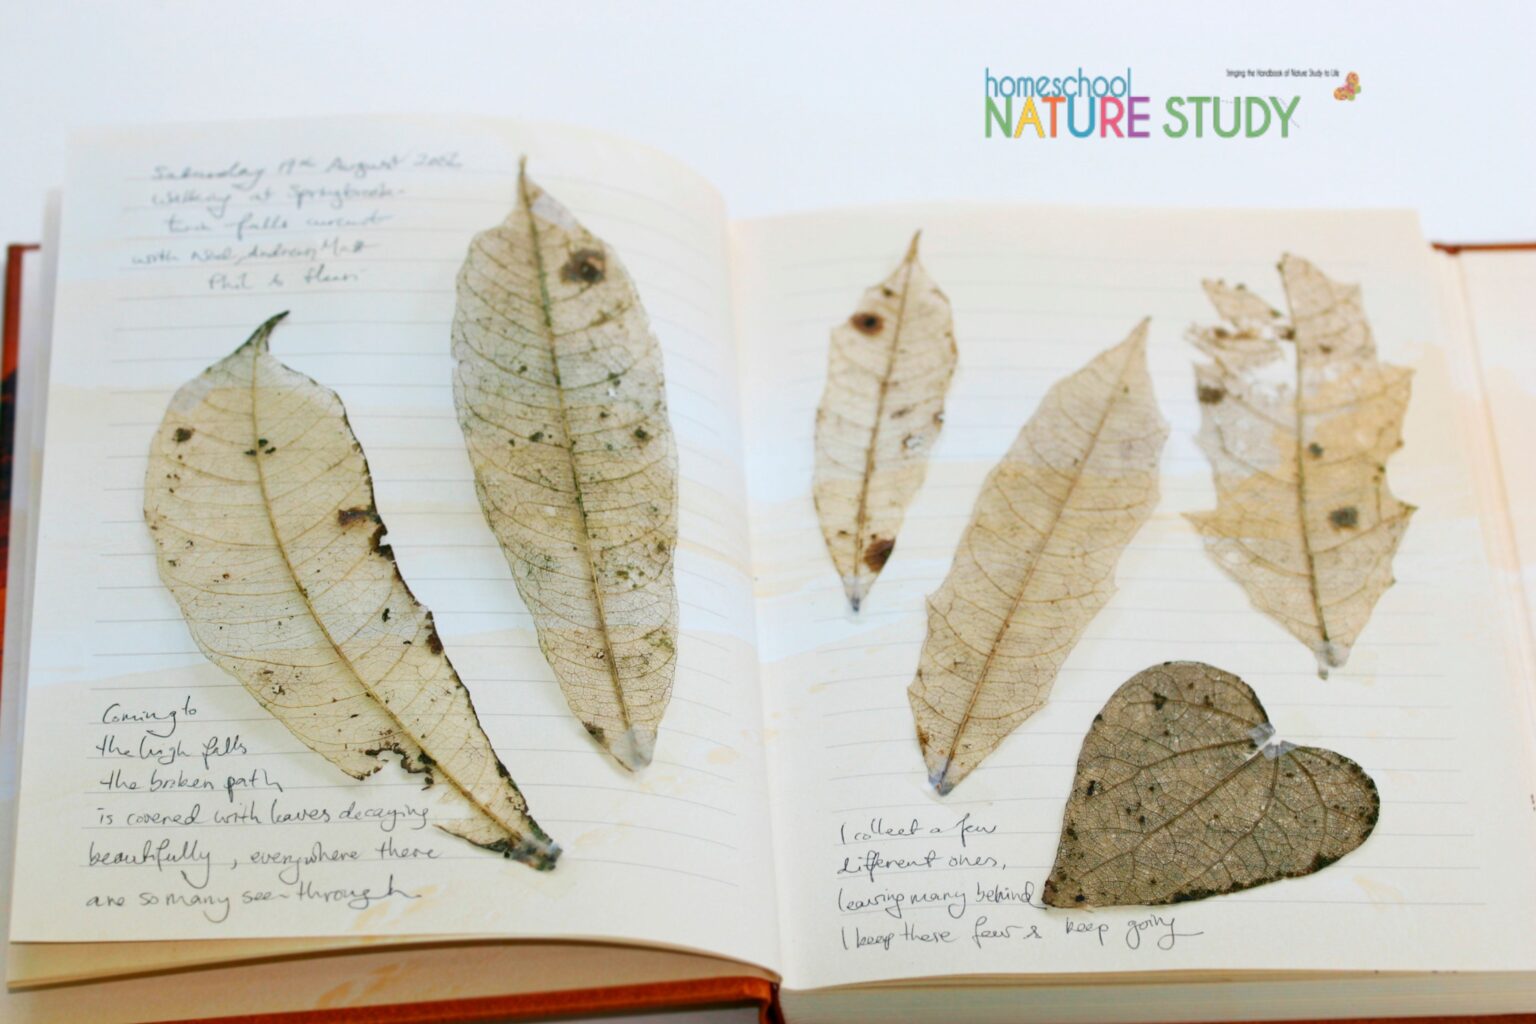 homeschool
Bringing the Handbook of Nature Study to Life
NATURE STUDY
Saturday 17th August 2002
Walking at Springbrook
twin falls circuit
with Neal, Andrew, Matt
Phil &
Coming to
the high falls
the broken path
is covered with leaves decaying
beautifully, everywhere there
are so many see-through
I collect a few
different ones,
leaving many behind
I keep these few & keep going